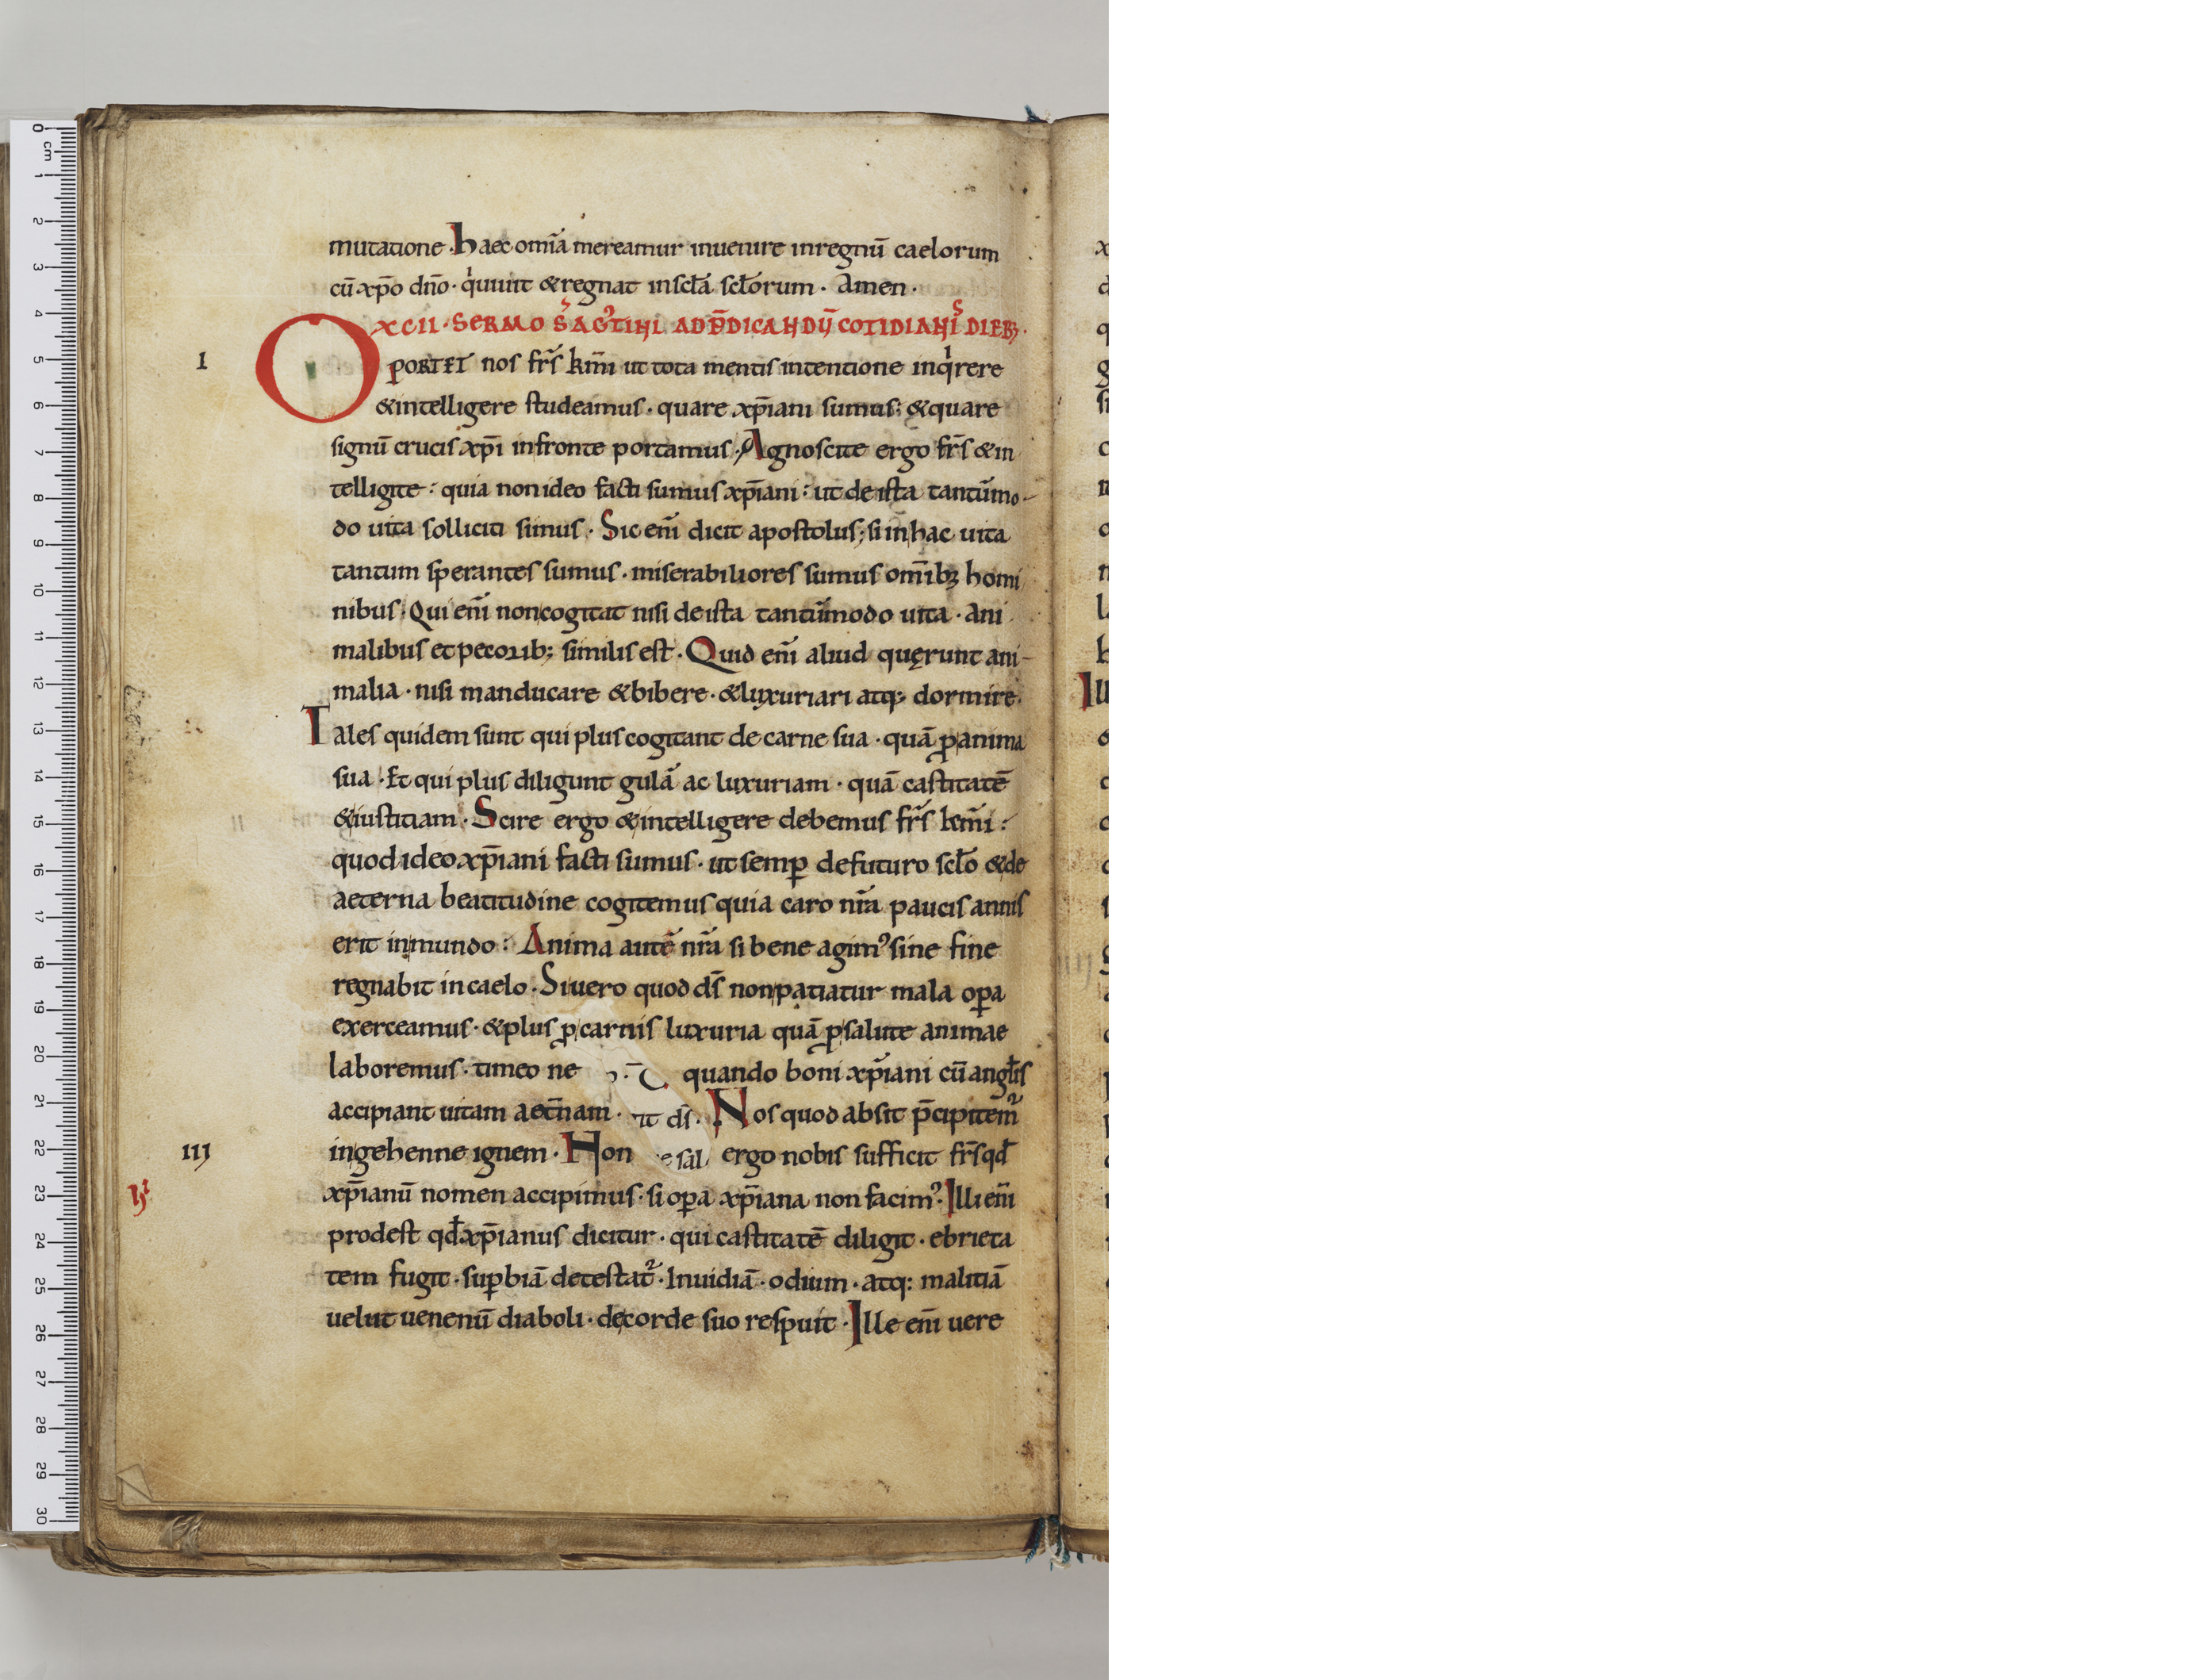 mutatione. haec om̄ia mereamur inuenire inregnū caelorum
cū xp̄o dn̄o. qͥuiuit &regnat inscl̄a scl̄orum. Amen.
XCII. SERMO S̄ AGꝰTINI AD P̄DICANDŪ COTIDIANIS DIEBꝫ.
I
OPORTET nos fr̄s km̄i ut tota mentis intentione inqͥrere
&intelligere studeamus. quare xp̄iani sumus; &quare
signū crucis xp̄i infronte portamus. Agnoscite ergo fr̄s &in
telligite: quia nonideo facti sumus xp̄iani: ut deista tantūmo-
do uita solliciti simus. Sic em̄ dicit apostolus; si in hac uita
tantum sperantes sumus. miserabiliores sumus om̄ibꝫ homi
nibus. Qui em̄ noncogitat nisi deista tantūmodo uita. Ani
malibus et pecorib; similis est. Quid em̄ aliud quęrunt ani-
malia. nisi manducare &bibere. &luxuriari atq; dormire.
Tales quidem sunt qui plus cogitant de carne sua. quā ꝓanima
sua. Et qui plus diligunt gulā ac luxuriam. quā castitatē
&iustitiam. Scire ergo &intelligere debemus fr̄s km̄i:
quod ideo xp̄iani facti sumus. ut semꝑ defuturo scl̄o &de
aeterna beatitudine cogitemus quia caro nr̄a paucis annis
erit inmundo: Anima autē nr̄a si bene agimꝰ sine fine
regnabit incaelo. Siuero quod ds̄ nonpatiatur mala oꝑa
exerceamus. &plus ꝓcarnis luxuria quā ꝓsalute animae
laboremus. timeo ne quando boni xp̄iani cū angl̄is
accipiant uitam aet̄nam. it ds̄. Nos quod absit p̄cipitem̄
III
ingehenne ignem. Non e sal ergo nobis sufficit fr̄s qd̄
xp̄ianū nomen accipimus. si oꝑa xp̄iana non facimꝰ. Illi em̄
prodest qd̄ xp̄ianus dicitur. qui castitatē diligit. ebrieta
tem fugit. suꝑbiā detestat᷑. Inuidiā. odium. atq: malitiā
uelut uenenū diaboli. decorde suo respuit. Ille em̄ uere